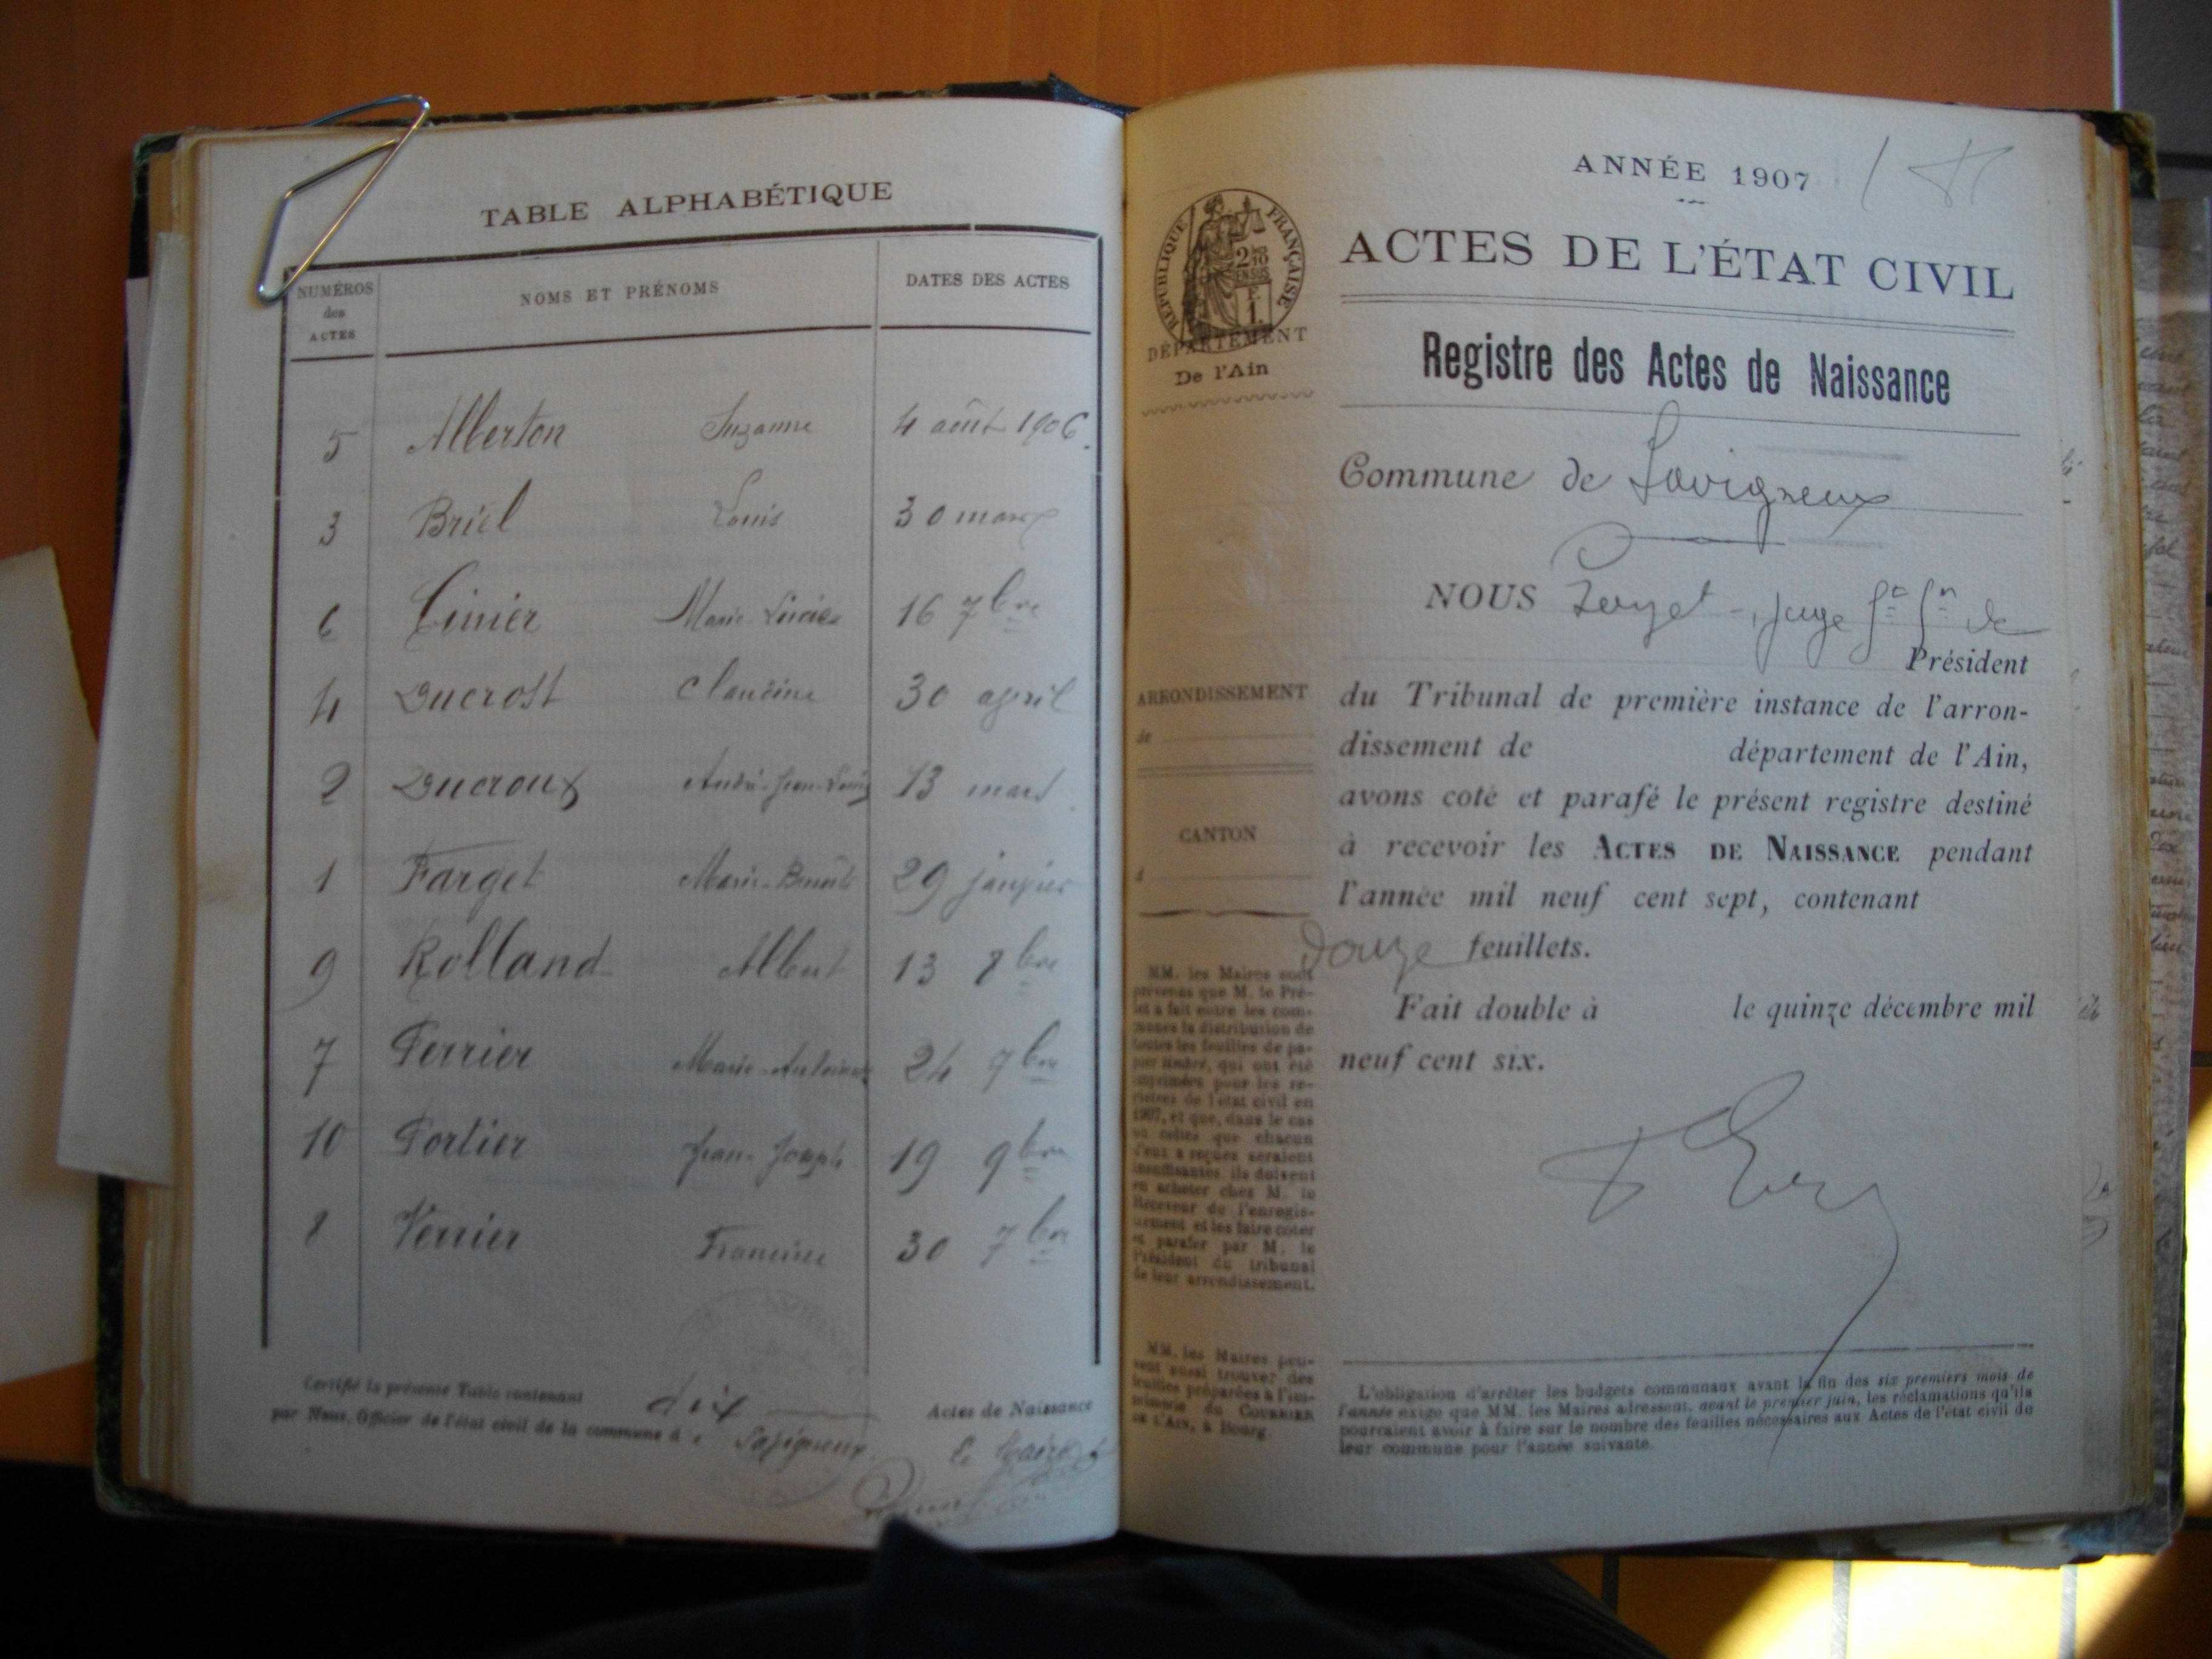 TABLE ALPHABÉTIQUE
NUMÉROS des ACTES NOMS ET PRÉNOMS DATES DES ACTES
5 Alberton Suzanne 4 août 1906.
3 Briel Louis 30 mars
6 Cinier Marie 16 7bre
4 Ducrost Claudine 30 april
2 Ducroux André-Jean-Louis 13 mars
1 Farget Marie-Benoîte 29 janvier
9 Rolland Albert 13 8bre
7 Perrier Marie-Antoinette 24 7bre
10 Portier Jean-Joseph 19 9bre
8 Verrier Francine 30 7bre
Certifié la présente Table contenant dix Actes de Naissance
par Nous, Officier de l'état civil de la commune d e Savigneux.
Le Maire
ANNÉE 1907
RÉPUBLIQUE FRANÇAISE
ACTES DE L'ÉTAT CIVIL
DÉPARTEMENT
De l'Ain
Registre des Actes de Naissance
Commune de Savigneux
NOUS juge
Président
ARRONDISSEMENT
de
CANTON
du Tribunal de première instance de l'arron-
dissement de département de l'Ain,
avons coté et parafé le présent registre destiné
à recevoir les ACTES DE NAISSANCE pendant
l'année mil neuf cent sept, contenant
Douze feuillets.
Fait double à le quinze décembre mil
neuf cent six.
MM. les Maires sont
prévenus que M. le Pré-
fet a fait entre les com-
munes la distribution de
toutes les feuilles de pa-
pier timbré, qui ont été
imprimées pour les re-
gistres de l'état civil en
1907, et que, dans le cas
où celles que chacun
d'eux a reçues seraient
insuffisantes, ils doivent
en acheter chez M. le
Receveur de l'enregis-
trement et les faire coter
et parafer par M. le
Président du tribunal
de leur arrondissement.
MM. les Maires peu-
vent aussi trouver des
feuilles préparées à l'im-
primerie du COURRIER
DE L'AIN, à Bourg.
L'obligation d'arrêter les budgets communaux avant la fin des six premiers mois de
l'année exige que MM. les Maires adressent, avant le premier juin, les réclamations qu'ils
pourraient avoir à faire sur le nombre des feuilles nécessaires aux Actes de l'état civil de
leur commune pour l'année suivante.